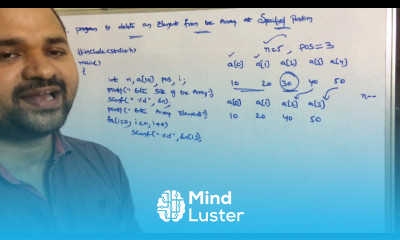 program to delete an Element from the Array at Specified Position
#include<stdio.h>
main()
{
int n, a[10], pos, i;
printf("Enter Size of the Array");
scanf("%d", &n);
printf("Enter Array Elements");
for(i=0; i<n; i++)
scanf("%d", &a[i]);
n=5 pos=3
a[0] a[1] a[2] a[3] a[4]
10 20 30 40 50
n--
a[0] a[1] a[2] a[3]
10 20 40 50
Mind
Luster